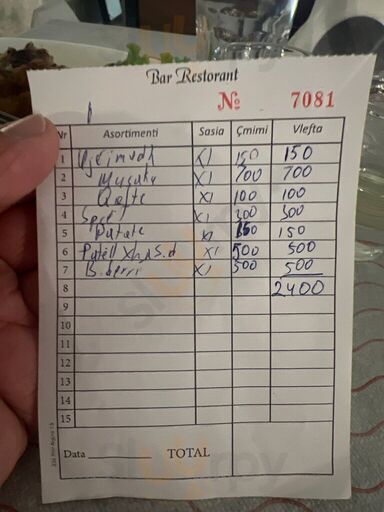 Bar Restorant
№ 7081
Nr Asortimenti Sasia Çmimi Vlefta
1 x1 150 150
2 Musaka x1 700 700
3 Qofte x1 100 100
4 x1 300 300
5 Patate x1 150 150
6 x1 500 500
7 x1 500 500
8 2400
9
10
11
12
13
14
15
Data TOTAL